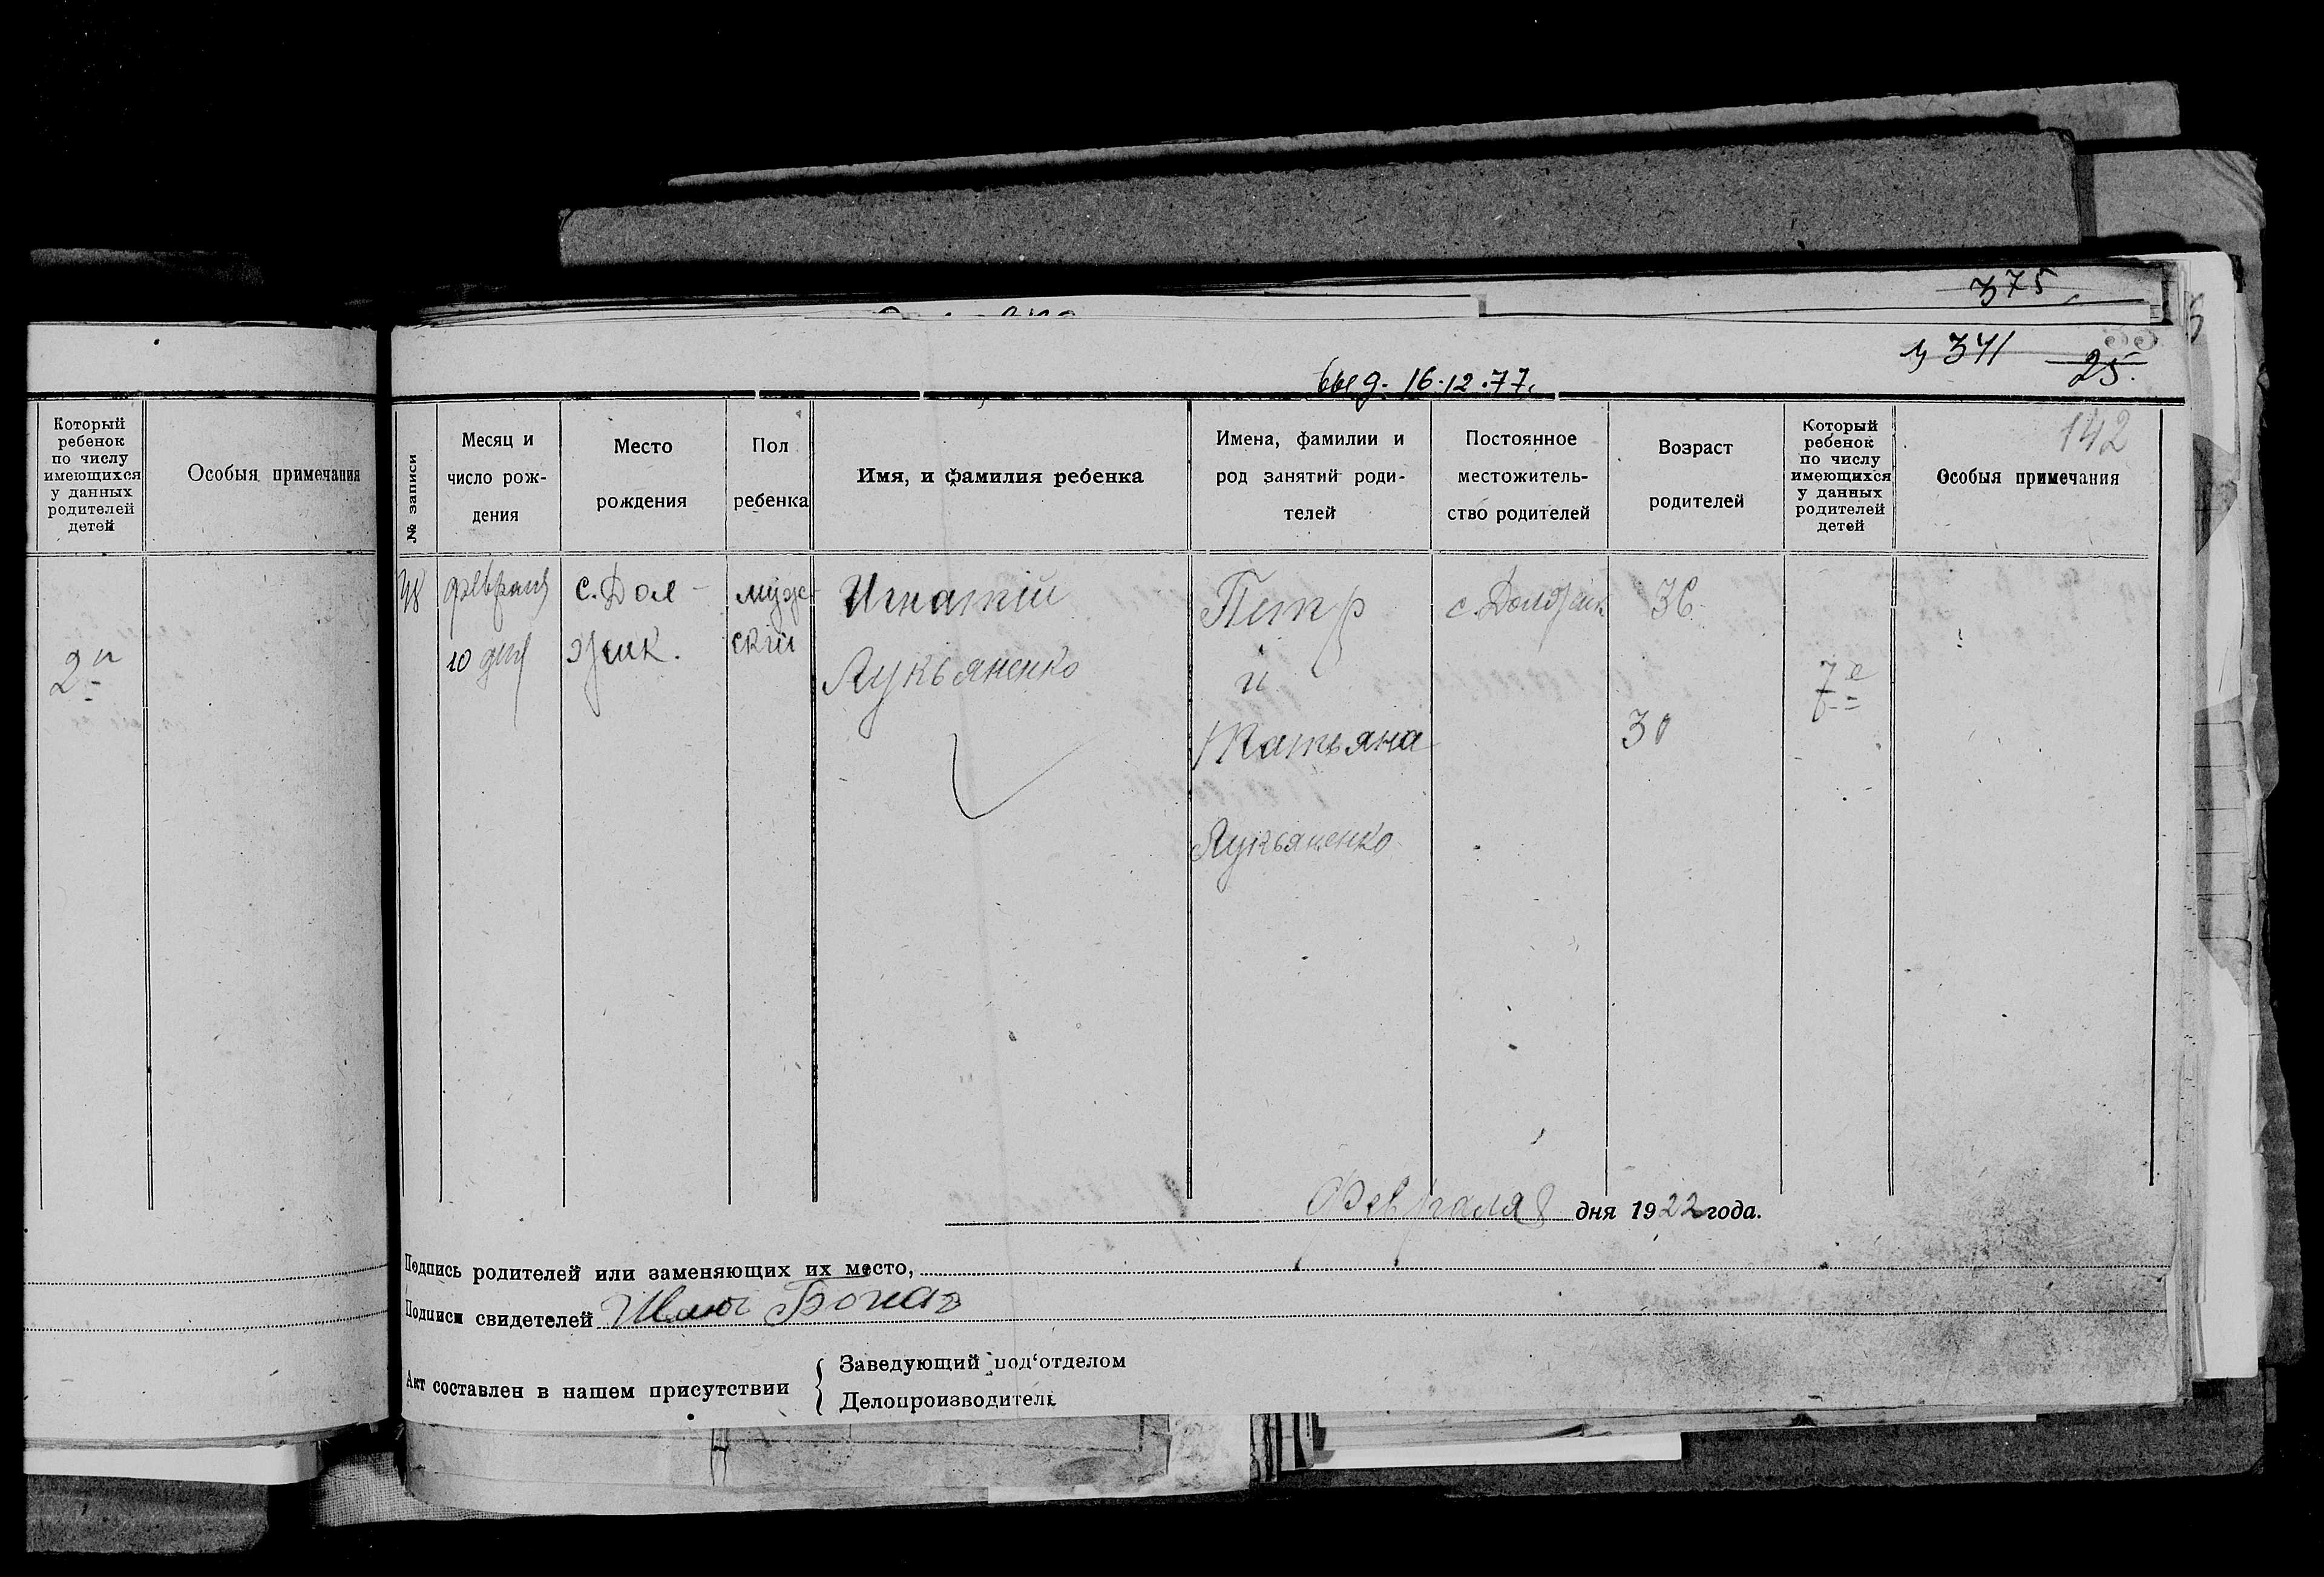 375
341
25.
выд. 16.12.77.
142
Который
ребенок
по числу
имеющихся
у данных
родителей
детей
Особыя примечания
2й
№ записи
Месяц и
число рож-
дения
Место
рождения
Пол
ребенка
Имя, и фамилия ребенка
Имена, фамилии и
род занятий роди-
телей
Постоянное
местожитель-
ство родителей
Возраст
родителей
Который
ребенок
по числу
имеющихся
у данных
родителей
детей
Особыя примечания
февраля
10 дня
с. Дол-
жик.
мужс-
кій
Игнатій
Лукьяненко
Петр
и
Татьяна
Лукьяненко
с. Должик
36
30
7е
Февраля 8 дня 1922 года.
Подпись родителей или заменяющих их место,
Подписи свидетелей
Акт составлен в нашем присутствии
Заведующий под'отделом
Делопроизводитель